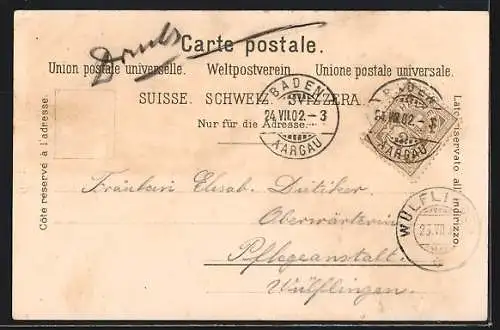 Drucks
Carte postale.
Union postale universelle. Weltpostverein. Unione postale universale.
SUISSE. SCHWEIZ. SVIZZERA.
Nur für die Adresse.
Côte réservé à l'adresse.
Lato riservato all'indirizzo.
BADEN
24.VII.02.-3
AARGAU
BADEN
24.VII.02.-3
AARGAU
WÜLFLI
25.VII
Fräulein Elisab. Dietiker
Oberwärterin
Pflegeanstalt.
Wülflingen.